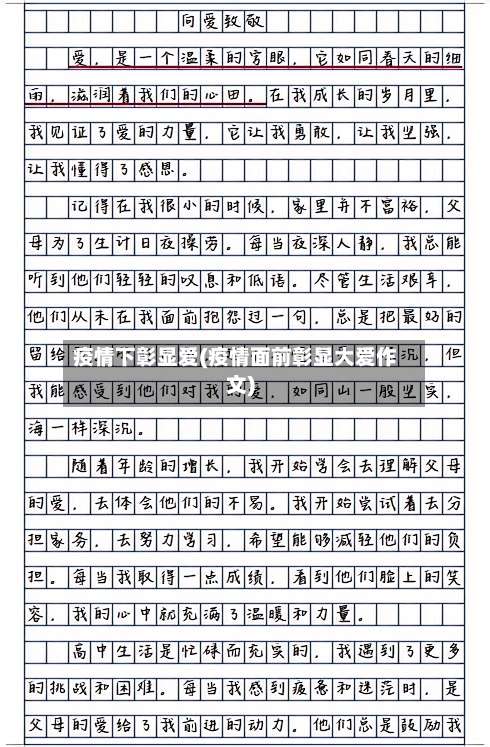 向爱致敬
爱，是一个温柔的字眼，它如同春天的细
雨，滋润着我们的心田。在我成长的岁月里，
我见证了爱的力量，它让我勇敢，让我坚强，
让我懂得了感恩。
记得在我很小的时候，家里并不富裕，父
母为了生计日夜操劳。每当夜深人静，我总能
听到他们轻轻的叹息和低语。尽管生活艰辛，
他们从未在我面前抱怨过一句，总是把最好的
留给 沉，但
疫情下彰显爱(疫情面前彰显大爱作
文)
我能感受到他们对我的爱，如同山一般坚实，
海一样深沉。
随着年龄的增长，我开始学会去理解父母
的爱，去体会他们的不易。我开始尝试着去分
担家务，去努力学习，希望能够减轻他们的负
担。每当我取得一点成绩，看到他们脸上的笑
容，我的心中就充满了温暖和力量。
高中生活是忙碌而充实的，我遇到了更多
的挑战和困难。每当我感到疲惫和迷茫时，是
父母的爱给了我前进的动力。他们总是鼓励我